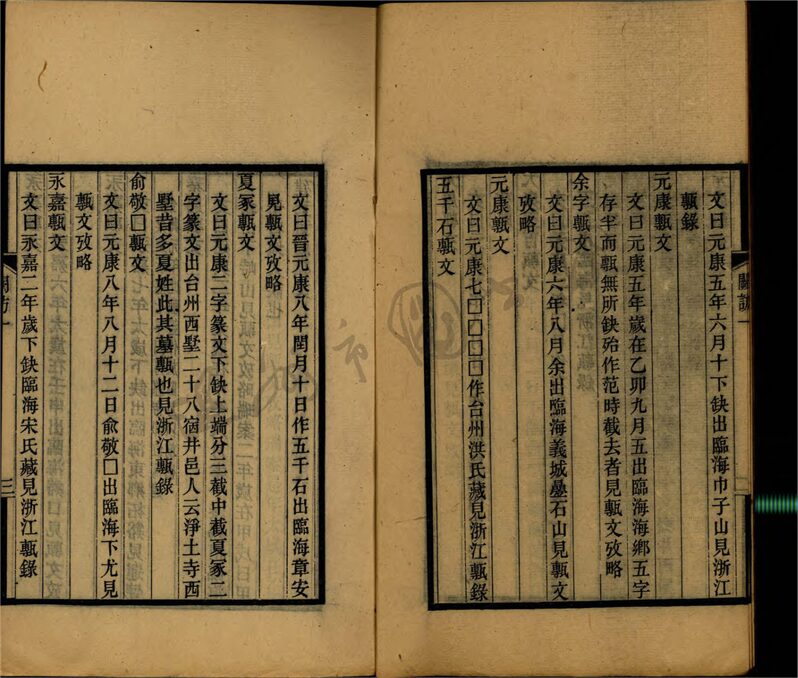 闕訪一
二
文曰元康五年六月十下缺出臨海巾子山見浙江
甎錄
元康甎文
文曰元康五年歲在乙卯九月五出臨海海鄉五字
存半而甎無所缺殆作范時截去者見甎文攷略
余字甎文
文曰元康六年八月余出臨海義城曡石山見甎文
攷略
元康甎文
文曰元康七□□□□作台州洪氏藏見浙江甎錄
五千石甎文
文曰晉元康八年閏月十日作五千石出臨海章安
見甎文攷略
夏冢甎文
文曰元康二字篆文下缺上端分三截中截夏冢二
字篆文出台州西墅二十八宿井邑人云淨土寺西
墅昔多夏姓此其墓甎也見浙江甎錄
俞敬□甎文
文曰元康八年八月十二日俞敬□出臨海下尤見
甎文攷略
永嘉甎文
文曰永嘉二年歲下缺臨海宋氏藏見浙江甎錄
三